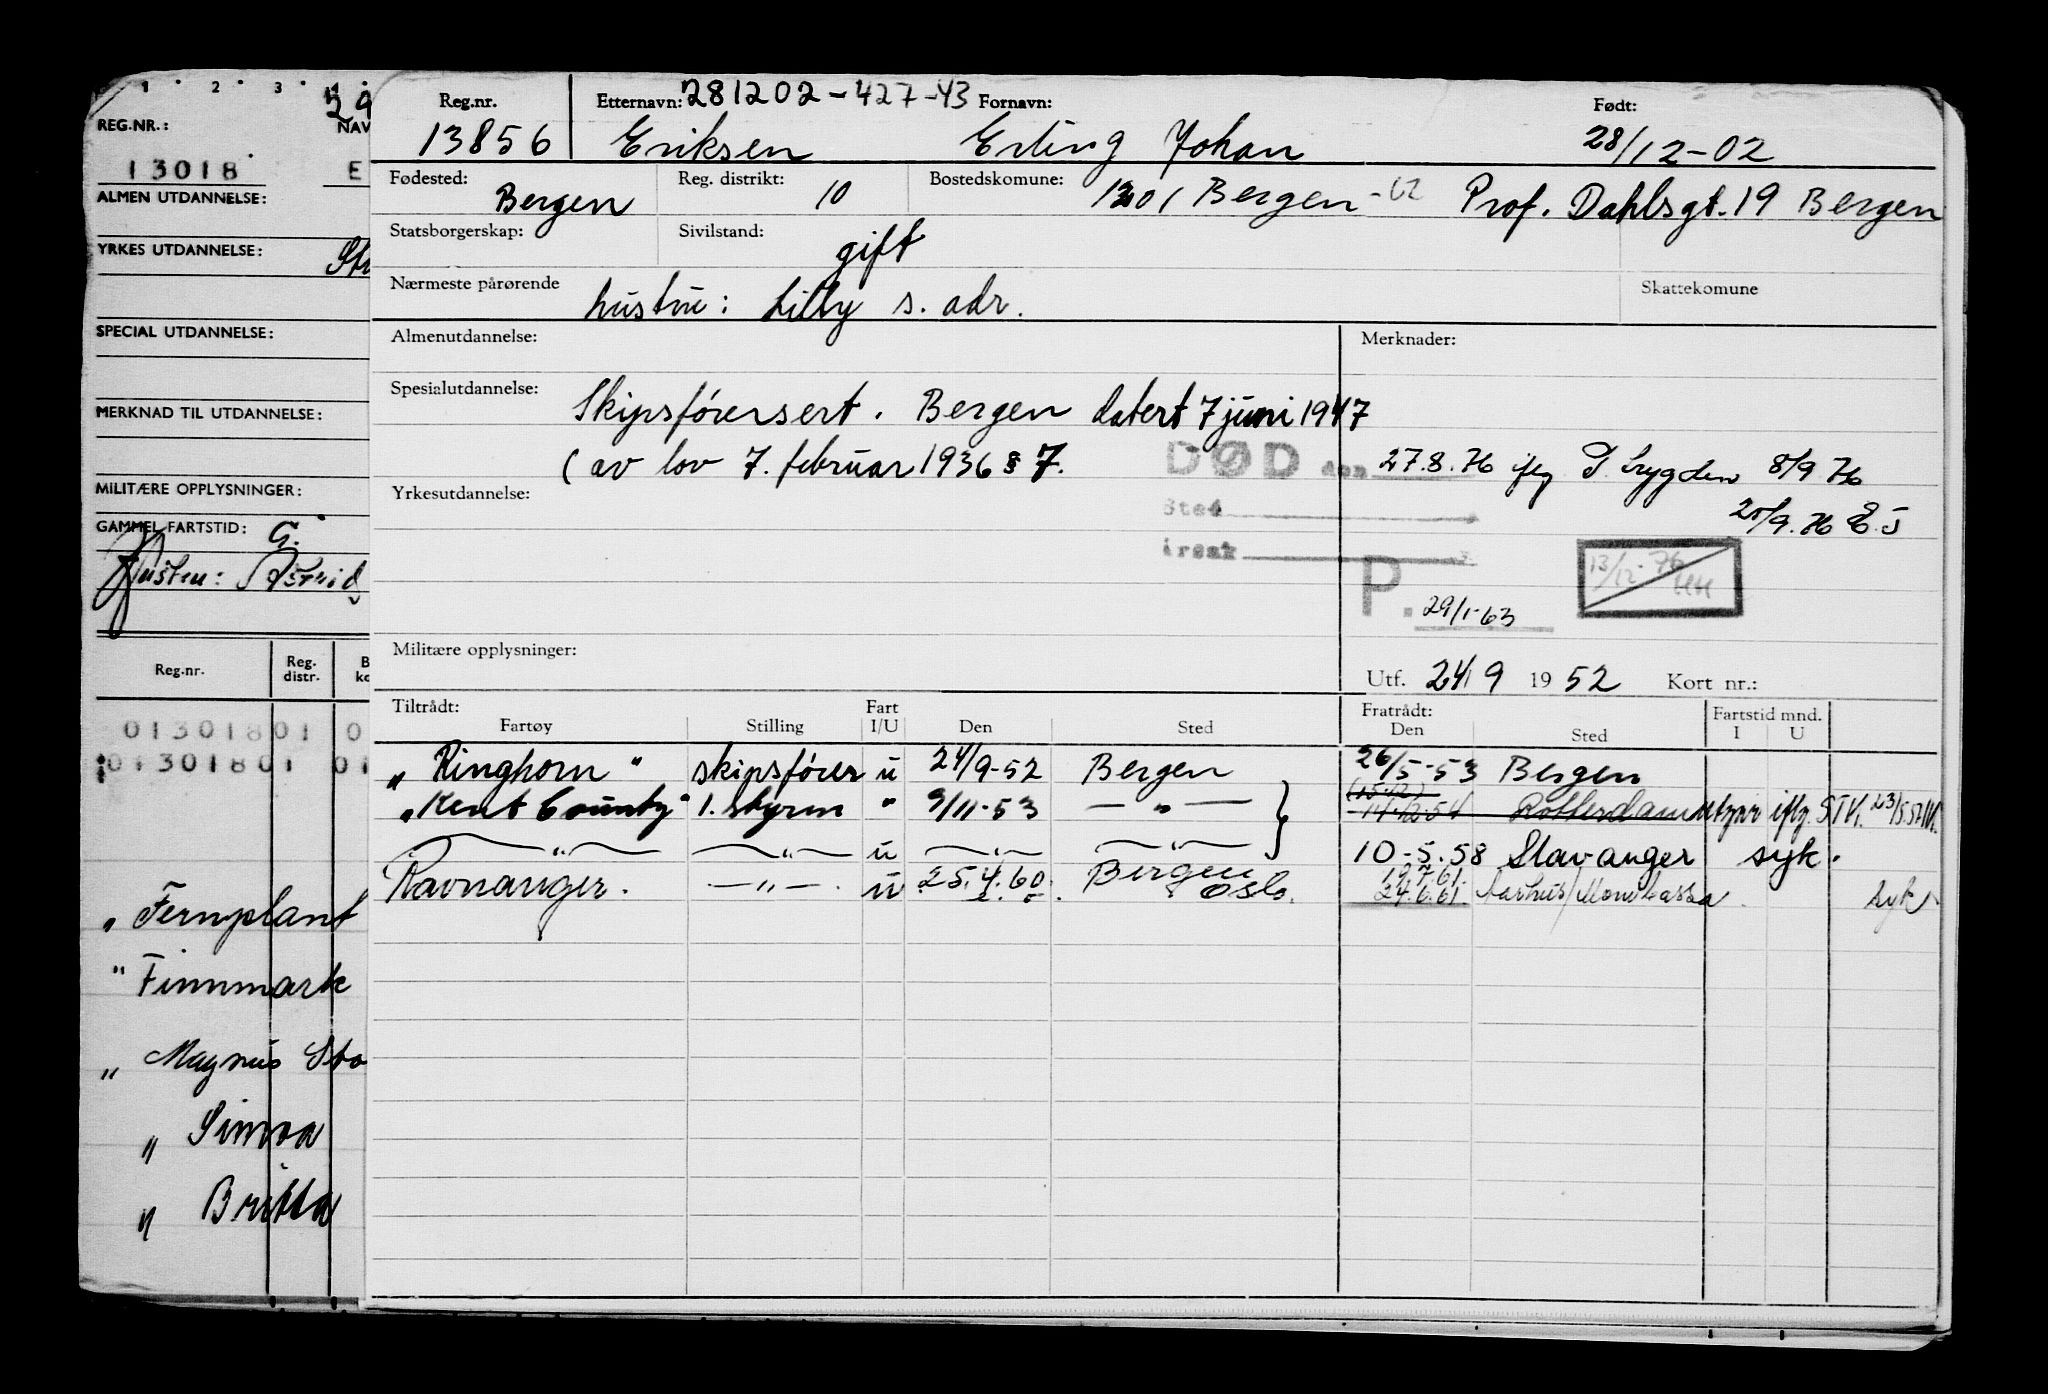 1 · 2 · 3 · 4 ·
29
REG.NR.: NAV
13018 E
ALMEN UTDANNELSE:
YRKES UTDANNELSE:
SPECIAL UTDANNELSE:
MERKNAD TIL UTDANNELSE:
MILITÆRE OPPLYSNINGER:
GAMMEL FARTSTID: G.
Astrid
Reg.nr. Reg. distr.
01301801 0
01301801 01
„ Fernplant
" Finnmark
„ Magnus Sta
„ Simoa
„ Britta
Reg.nr. Etternavn: 281202-427-43 Fornavn: Født:
13856 Eriksen Erling Johan 28/12-02
Fødested: Bergen Reg. distrikt: 10 Bostedskomune: 1301 Bergen -62 Prof. Dahlsgt. 19 Bergen
Statsborgerskap: Sivilstand: gift
Nærmeste pårørende hustru: Lilly s. adr. Skattekomune
Almenutdannelse: Merknader:
Spesialutdannelse: Skipsførersert. Bergen datert 7 juni 1947
(av lov 7. februar 1936 § 7.
DØD den 27.8.76 8/9 76
Sted 20/9.76 E.J
Årsak
Yrkesutdannelse:
P. 29/1-63
13/12-76
Militære opplysninger:
Utf. 24/9 1952 Kort nr.:
Tiltrådt: Fart Fratrådt: Fartstid mnd.
Fartøy Stilling I/U Den Sted Den Sted I U
„Ringhorn" skipsfører u 24/9-52 Bergen 26/5-53 Bergen
„Kent County" 1. styrm " 9/11-53 — " — 14.12.54 Rotterdam 23/5.57
— " — — " — u — " — — " — 10-5.58 Stavanger syk.
Ravnanger. — " —. u 25.4.60. Bergen Oslo. 19.7.61. 24.6.61. Aarhus/Mombassa syk